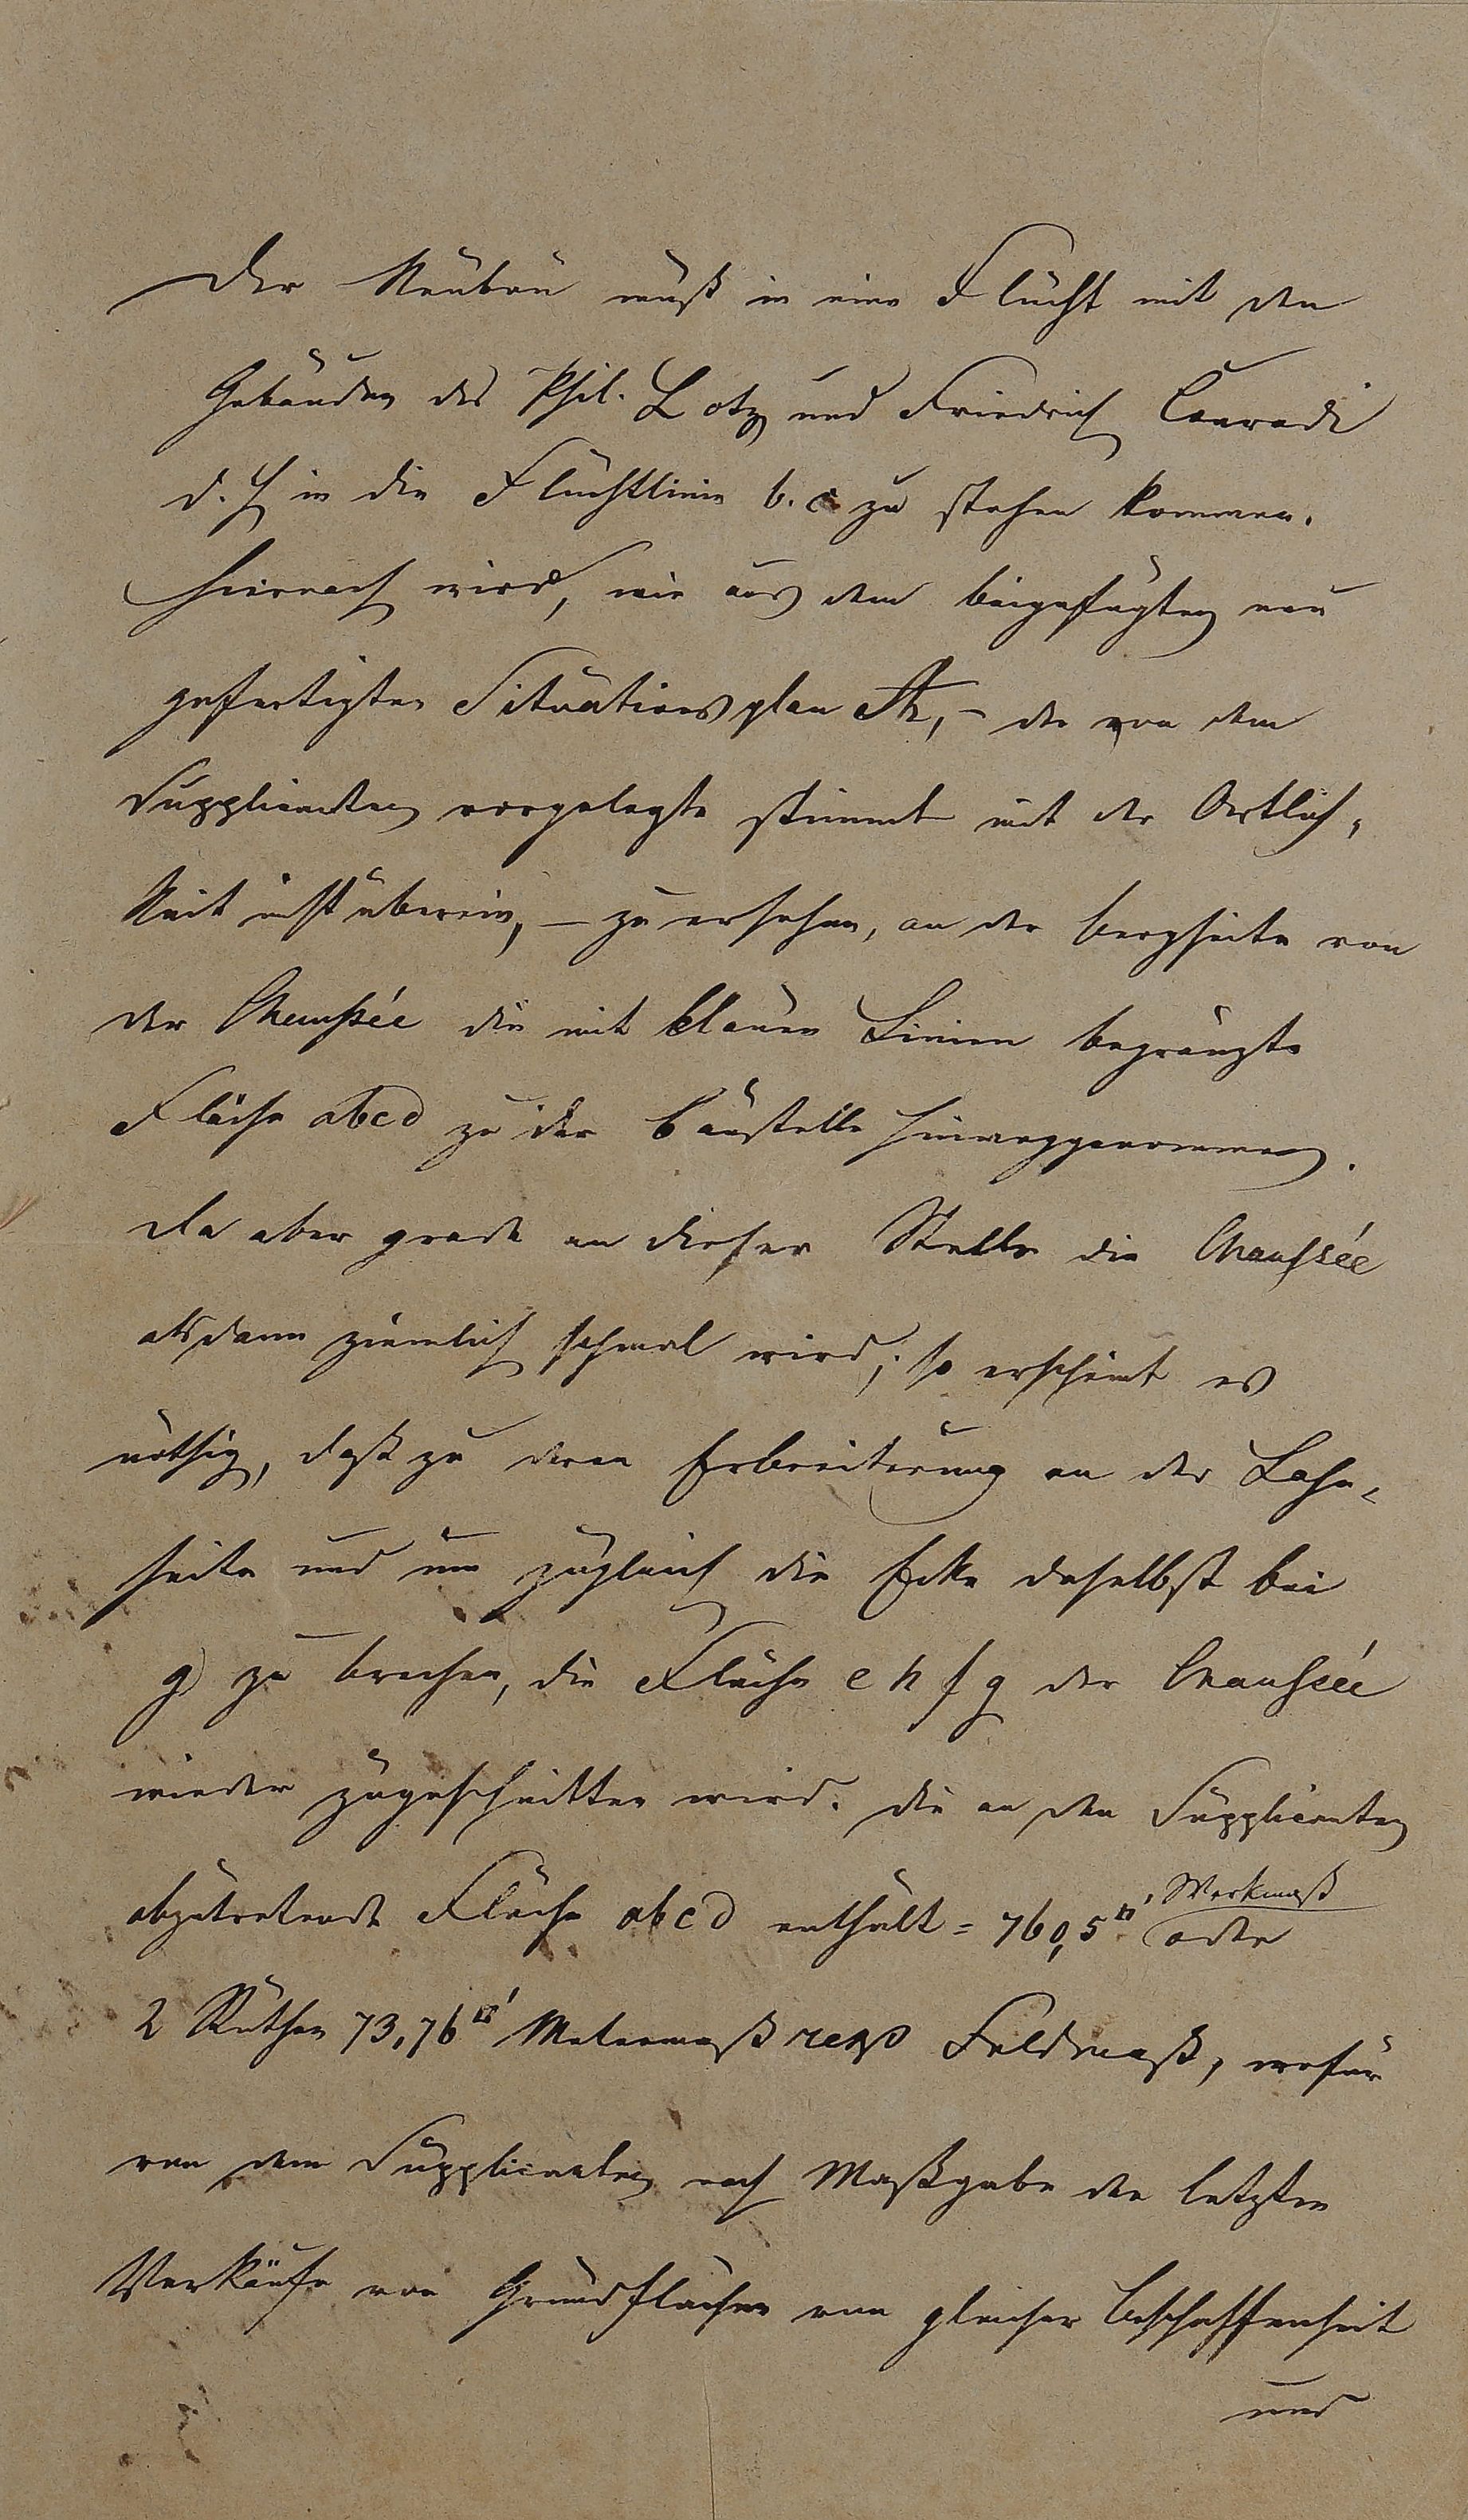 Der Neubau muß in eine Flucht mit den
Gebäuden des Phil. Lotz und Friedrich Conradi
d. h in die Fluchtlinie b. c zu stehen kommen.
Hiernach wird, wie aus dem beigefügten neu
gefertigten Situationsplan A, – der von dem
Supplicanten vorgelegte stimmt mit der Oertlich-
keit nicht überein, – zu ersehen, an der Bergseite von
der Chaussée die mit blauen Linien begränzte
Fläche abcd zu der Baustelle hinweggenommen.
Da aber grade an dieser Stelle die Chaussée
alsdann ziemlich schmal wird; so erscheint es
nöthig, daß zu deren Erbreiterung an der Lahn-
seite und um zugleich die Ecke daselbst bei
g) zu brechen, die Fläche e h f g der Chaussée
wieder zugeschnitten wird. Die an den Supplicanten
abzutretende Fläche abcd enthält = 760,5 □' Werkmaß oder
2 Ruthen 73,76 □' Metermaß resp Feldmaß, wofür
von dem Supplicanten nach Maßgabe der letzten
Verkäufe von Grundflächen von gleicher Beschaffenheit
und